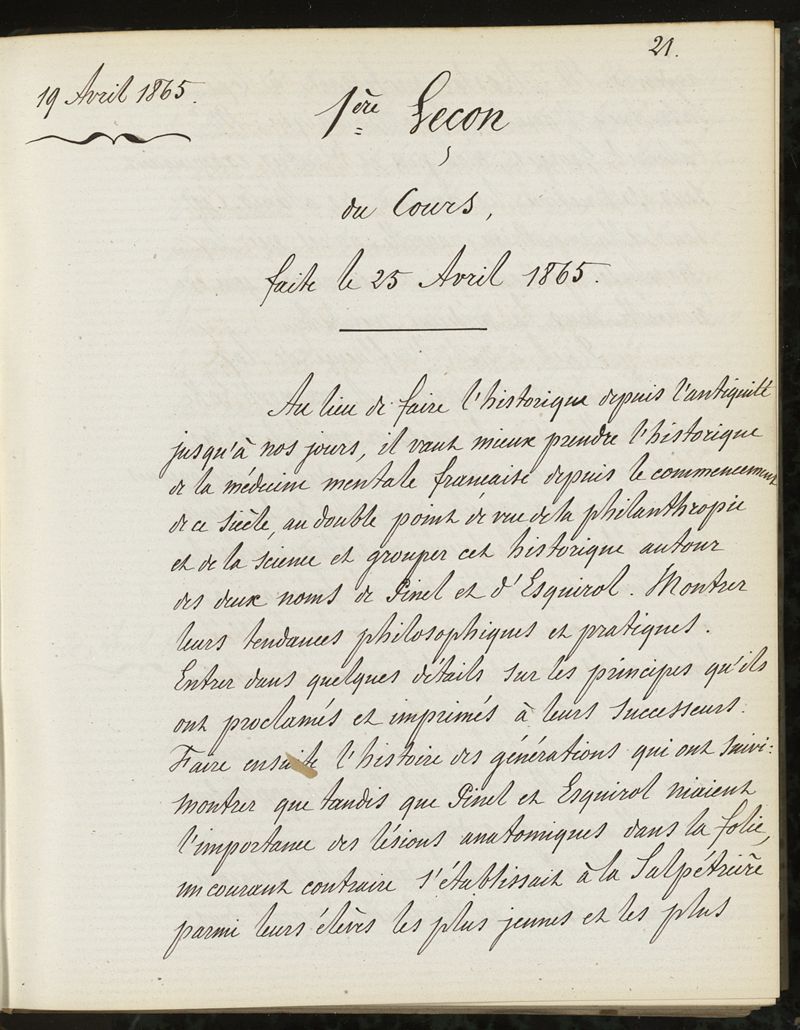 21.
19 Avril 1865.
1ère Leçon
du Cours,
faite le 25 Avril 1865.
Au lieu de faire l'historique depuis l'antiquité
jusqu'à nos jours, il vaut mieux prendre l'historique
de la médecine mentale française depuis le commencement
de ce siècle, au double point de vue de la philanthropie
et de la science et grouper cet historique autour
des deux noms de Pinel et d'Esquirol. Montrer
leurs tendances philosophiques et pratiques.
Entrer dans quelques détails sur les principes qu'ils
ont proclamés et imprimés à leurs successeurs.
Faire ensuite l'histoire des générations qui ont suivi:
montrer que tandis que Pinel et Esquirol niaient
l'importance des lésions anatomiques dans la folie,
un courant contraire s'établissait à la Salpétrière
parmi leurs élèves les plus jeunes et les plus